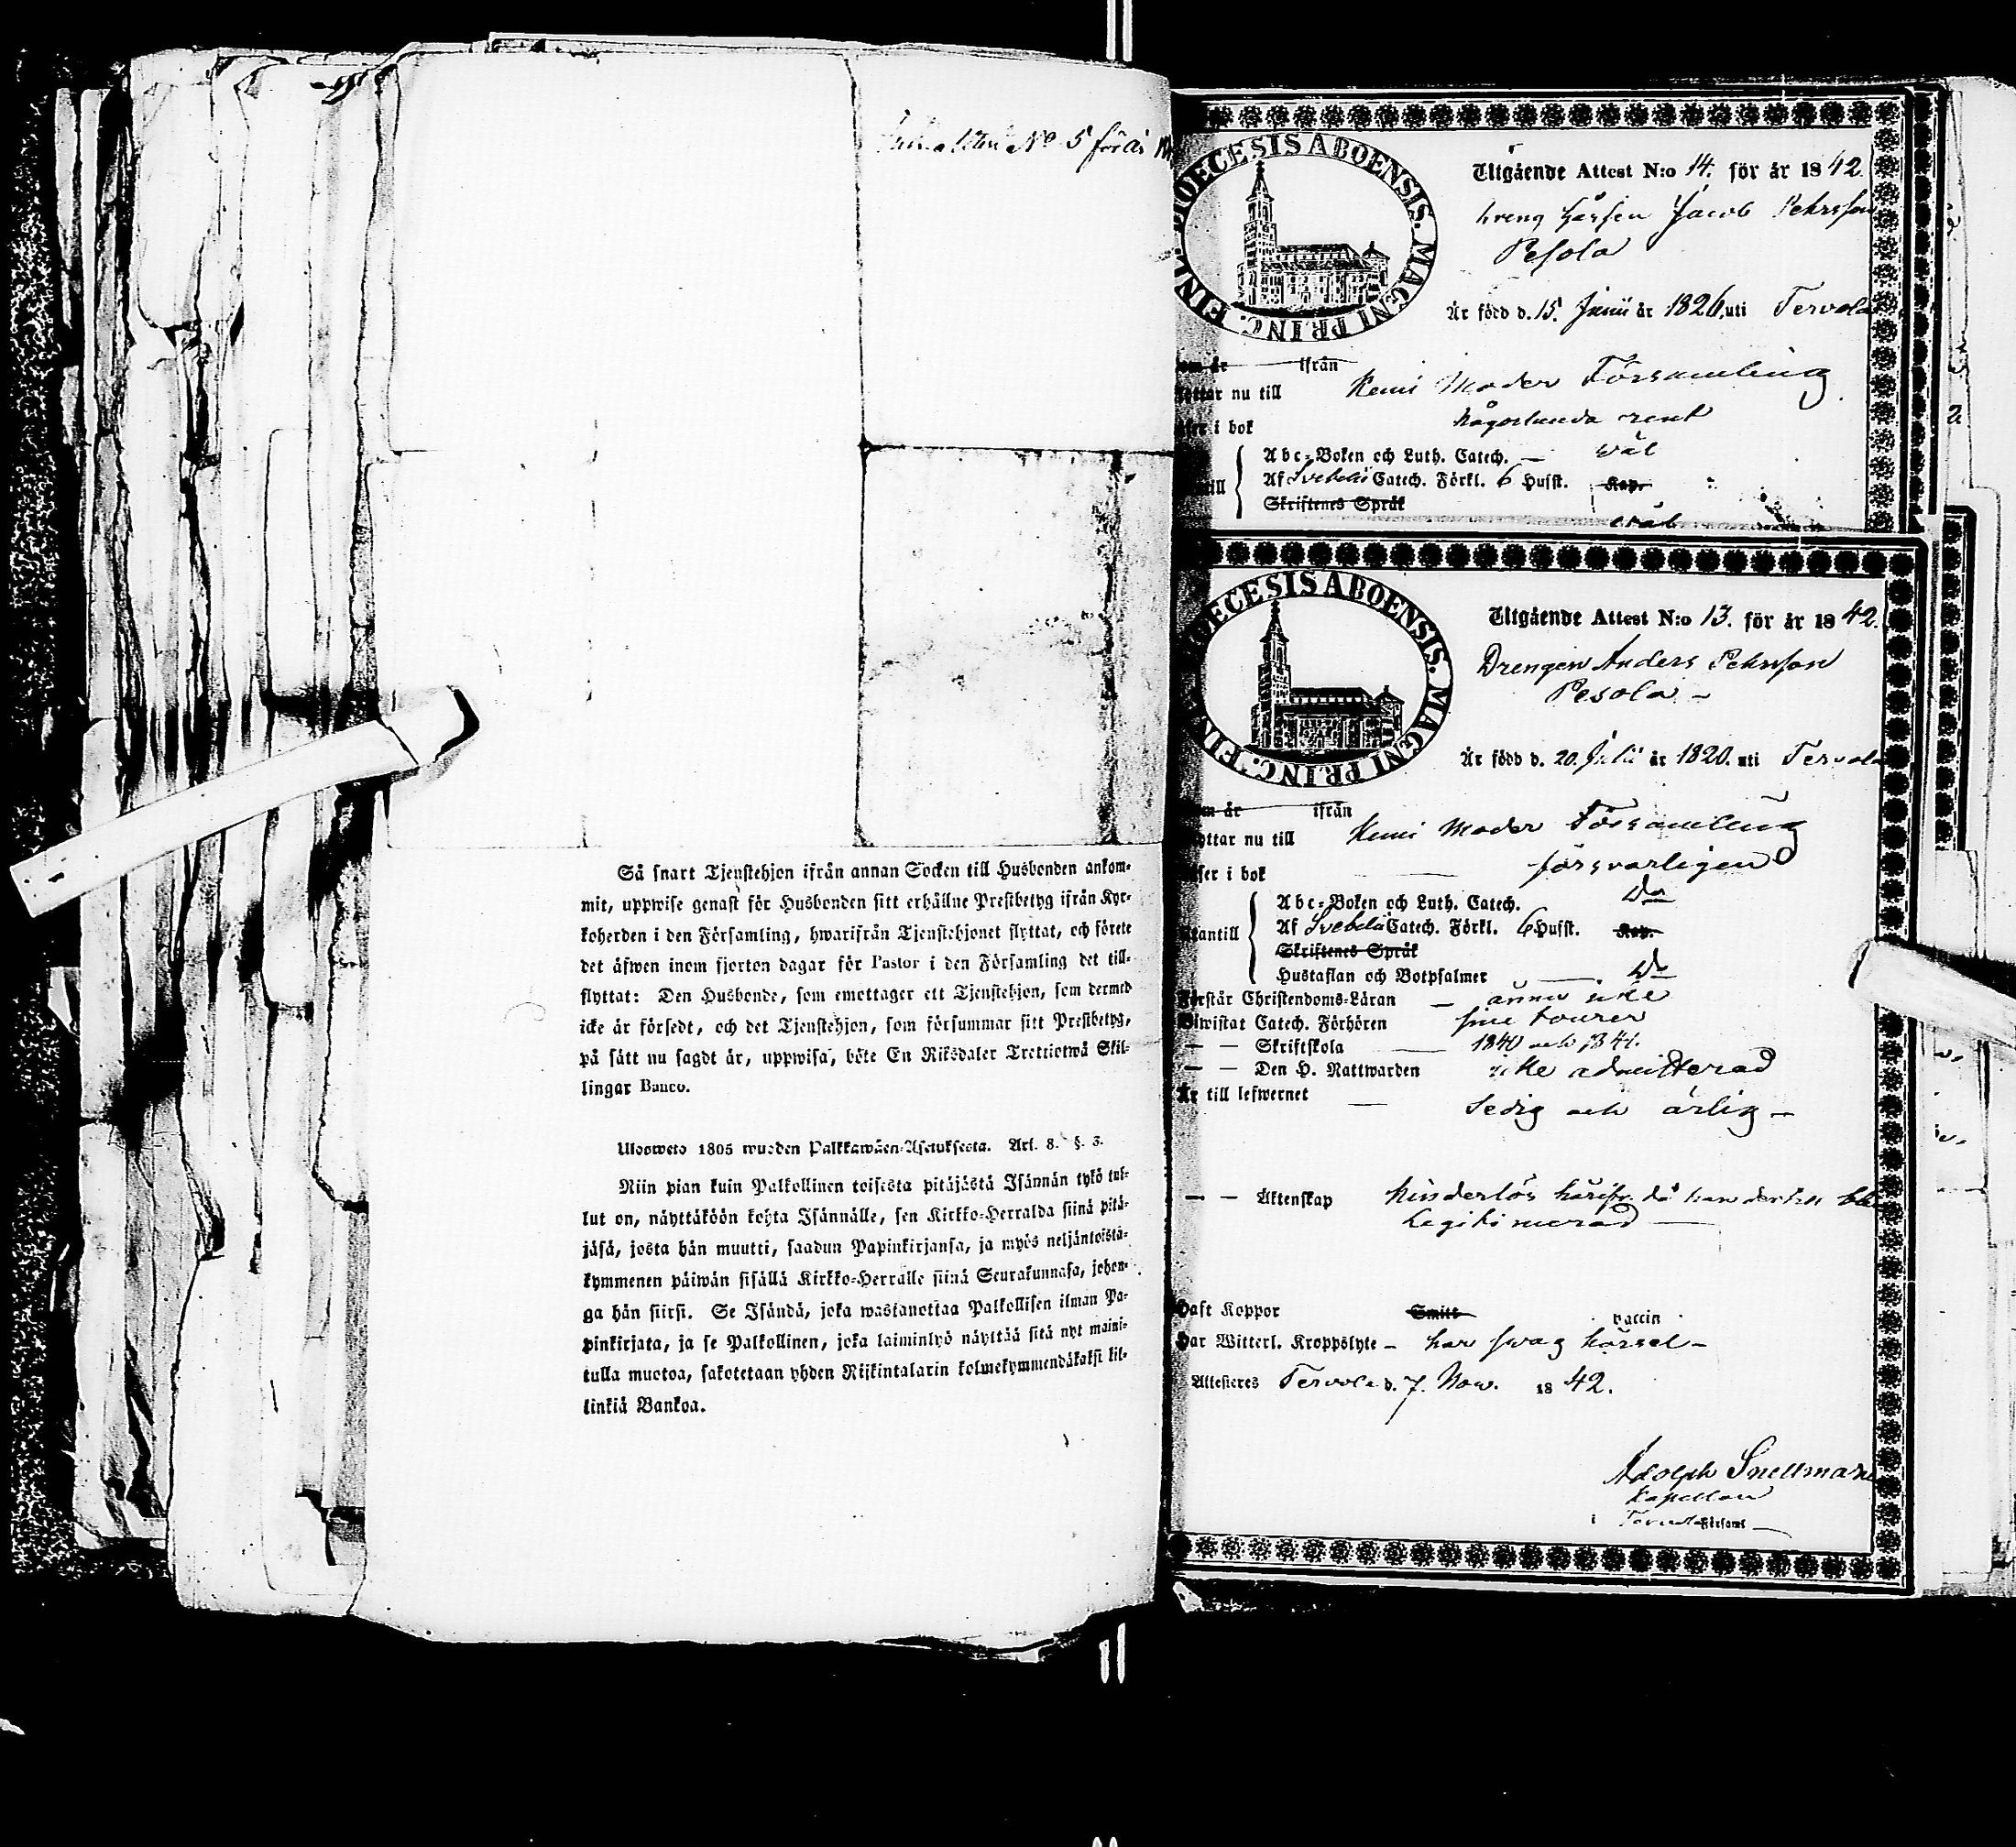 N:o 5 för år
Så snart Tjenstehjon ifrån annan Socken till Husbonden ankom-
mit, uppwise genast för Husbonden sitt erhållne Prestbetyg ifrån Kyr-
koherden i den Församling, hwarifrån Tjenstehjonet flyttat, och förete
det äfwen inom fjorton dagar för Pastor i den Församling det till-
flyttat: Den Husbonde, som emottager ett Tjenstehjon, som dermed
icke är försedt, och det Tjenstehjon, som försummar sitt Prestbetyg,
på sätt nu sagdt är, uppwisa, böte En Riksdaler Trettiotwå Skil-
lingar Banco.
Ulosweto 1805 wuoden Palkkawäen-Asetuksesta. Art. 8. §. 3.
Niin pian kuin Palkollinen toisesta pitäjästä Isännän tykö tul-
lut on, näyttäköön kohta Isännälle, sen Kirkko-Herralda siinä pitä-
jäsä, josta hän muutti, saadun Papinkirjansa, ja myös neljäntoistä-
kymmenen päiwän sisällä Kirkko-Herralle siinä Seurakunnasa, johon-
ga hän siirsi. Se Isändä, joka wastanottaa Palkollisen ilman Pa-
pinkirjata, ja se Palkollinen, joka laiminlyö näyttää sitä nyt maini-
tulla muotoa, sakotetaan yhden Riikintalarin kolmekymmendäkaksi kil-
linkiä Bankoa.
DIOECESIS ABOENSIS. MAGNI PRINC. FINL.
Utgående Attest N:o 14. för år 1842.
Jacob Pehrsson
Pesola
Är född d. 15. Junii år 1826. uti Tervola
om år ifrån
flyttar nu till Kemi Moder Församling
i bok någorlunda rent
Abc-Boken och Luth. Catech. — wäl
Af Svebelii Catech. Förkl. 6 Husst. Kap.
till
Skriftenes Språk
wäl
DIOECESIS ABOENSIS. MAGNI PRINC. FINL.
Utgående Attest N:o 13. för år 1842.
Drengen Anders Pehrsson
Pesola —
Är född d. 20. Julii år 1820. uti Tervola
om år ifrån
flyttar nu till Kemi Moder Församling
i bok försvarligen
Abc-Boken och Luth. Catech. Do
Af Svebelii Catech. Förkl. 6 Husst. Kap.
utantill
Skriftenes Språk
Hustaflan och Botpsalmer — Do
Förstår Christendoms-Läran — ännu icke
Biwistat Catech. Förhören sine tourer
— — Skriftskola — 1840 och 1841.
— — Den H. Nattwarden icke admitterad
Är till lefwernet — Sedig och ärlig —
— — Äktenskap hinderlös härifr. då han
Legitimerad —
Haft Koppor Smitt vaccin
Har Witterl. Kroppslyte — har swag hörsel —
Attesteres Tervola d. 7. Nov. 1842.
Adolph Snellman
Kapellan
i Tervola Församl —